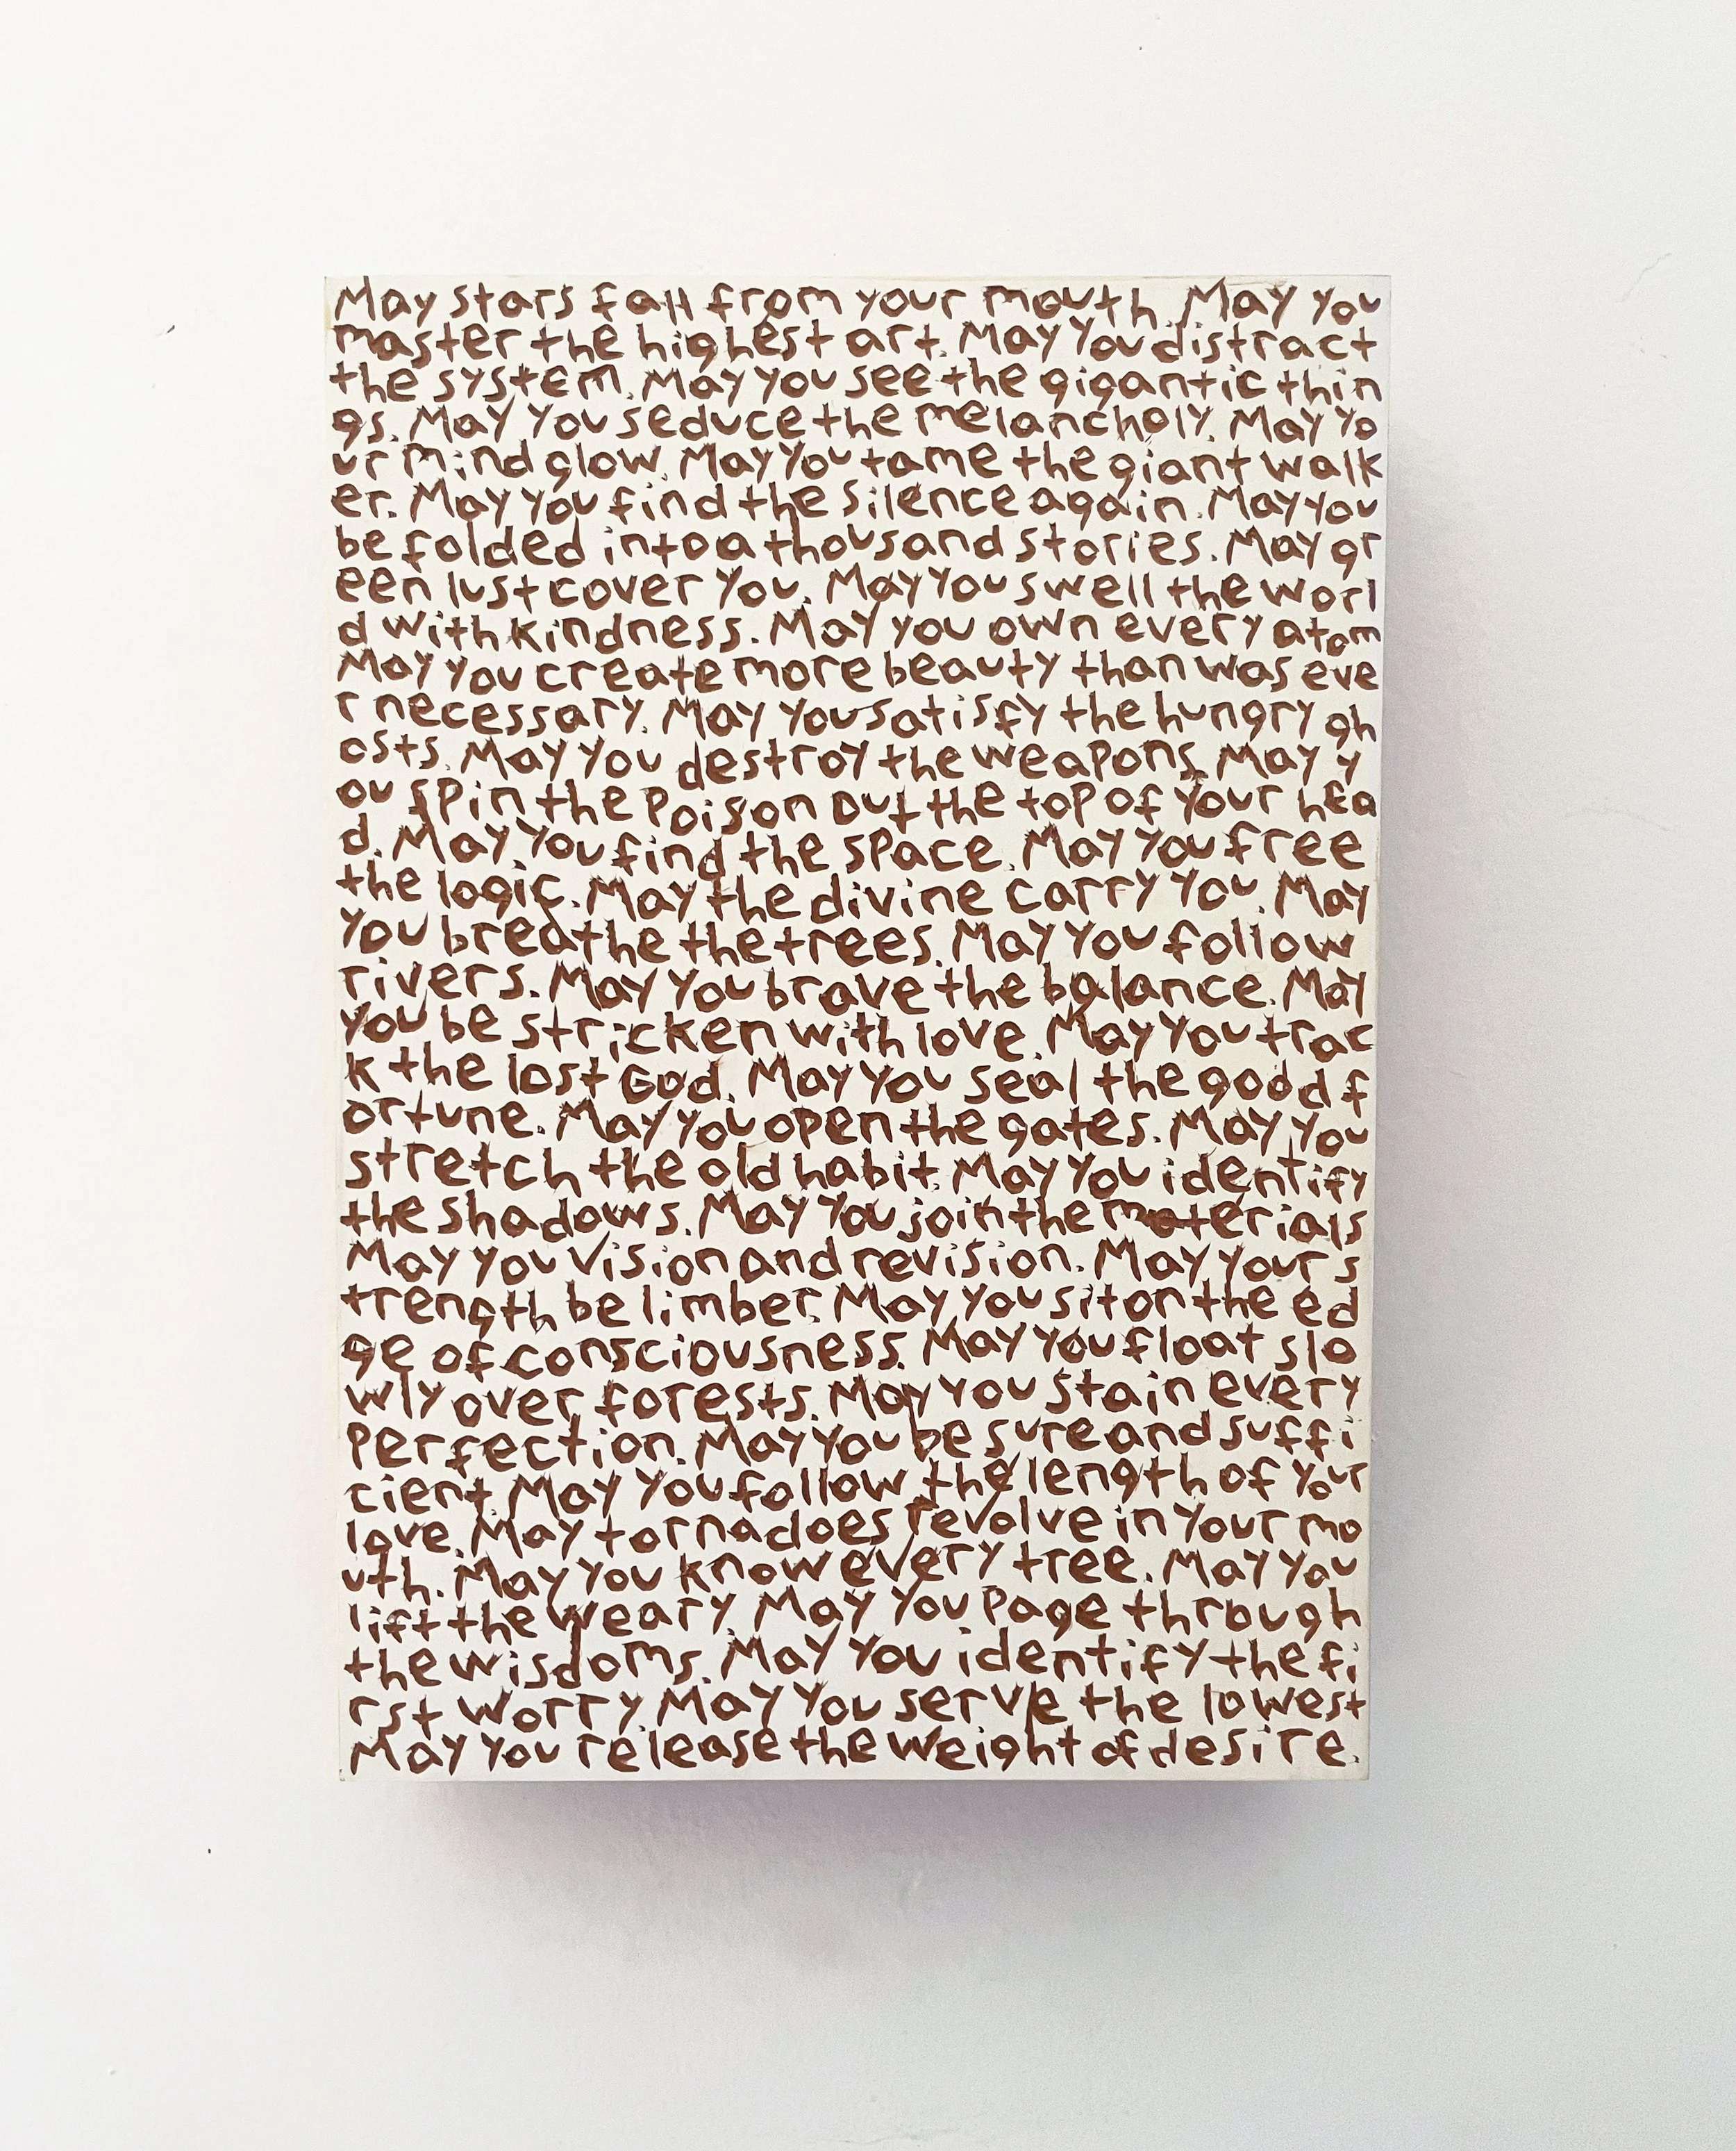 May stars fall from your mouth. May you
master the highest art. May you distract
the system. May you see the gigantic thin
gs. May you seduce the melancholy. May yo
ur mind glow. May you tame the giant walk
er. May you find the silence again. May you
be folded into a thousand stories. May gr
een lust cover you. May you swell the worl
d with kindness. May you own every atom
May you create more beauty than was eve
r necessary. May you satisfy the hungry gh
osts. May you destroy the weapons. May y
ou spin the poison out the top of your hea
d. May you find the space. May you free
the logic. May the divine carry you. May
you breathe the trees. May you follow
rivers. May you brave the balance. May
you be stricken with love. May you trac
k the lost God. May you seal the good f
ortune. May you open the gates. May you
stretch the old habit. May you identify
the shadows. May you join the materials
May you vision and revision. May your s
trength be limber. May you sit on the ed
ge of consciousness. May you float slo
wly over forests. May you stain every
perfection. May you be sure and suffi
cient. May you follow the length of your
love. May tornadoes revolve in your mo
uth. May you know every tree. May you
lift the weary. May you page through
the wisdoms. May you identify the fi
rst worry. May you serve the lowest
May you release the weight of desire.